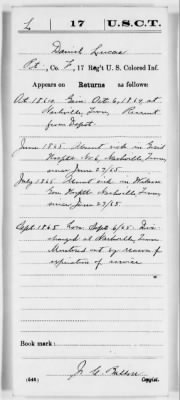 L | 17 | U.S.C.T.
Daniel Lucas
Pvt, Co. F, 17 Reg't U. S. Colored Inf.
Appears on Returns as follows:
Oct 1864. Gain Oct. 6, 1864 at
Nashville, Tenn, Recruit
from Depot.
June 1865 Absent sick in Genl
Hosptl No 6, Nashville, Tenn,
since June 27/65.
July 1865 Absent sick in Wilson
Gen Hosptl Nashville, Tenn,
since June 27/65.
Sept 1865 Loss Sept 6/65. Dis-
charged at Nashville, Tenn
Mustered out by reason of
expiration of service
Book mark:
(546)
Copyist.